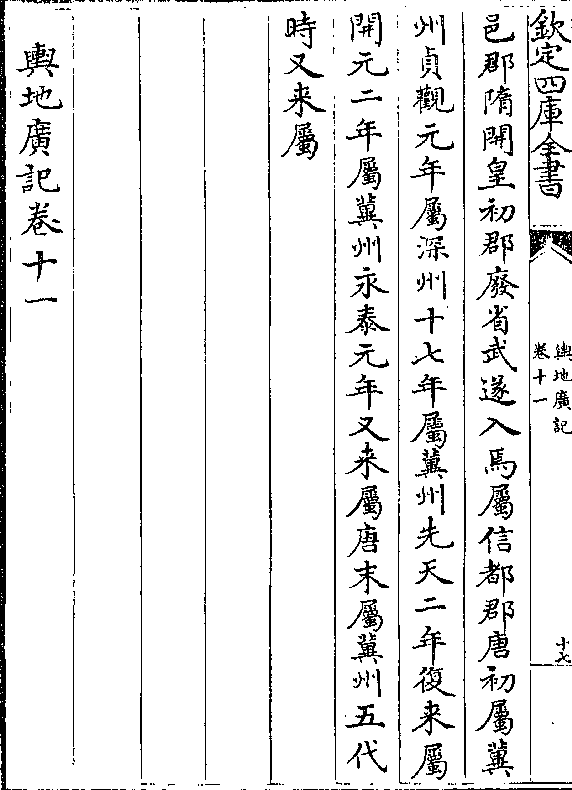 欽定四庫全書
輿地廣記
卷十一
十七
邑郡隋開皇初郡廢省武遂入焉屬信都郡唐初屬冀
州貞觀元年屬深州十七年屬冀州先天二年復来屬
開元二年屬冀州永泰元年又来屬唐末屬冀州五代
時又来屬
輿地廣記卷十一